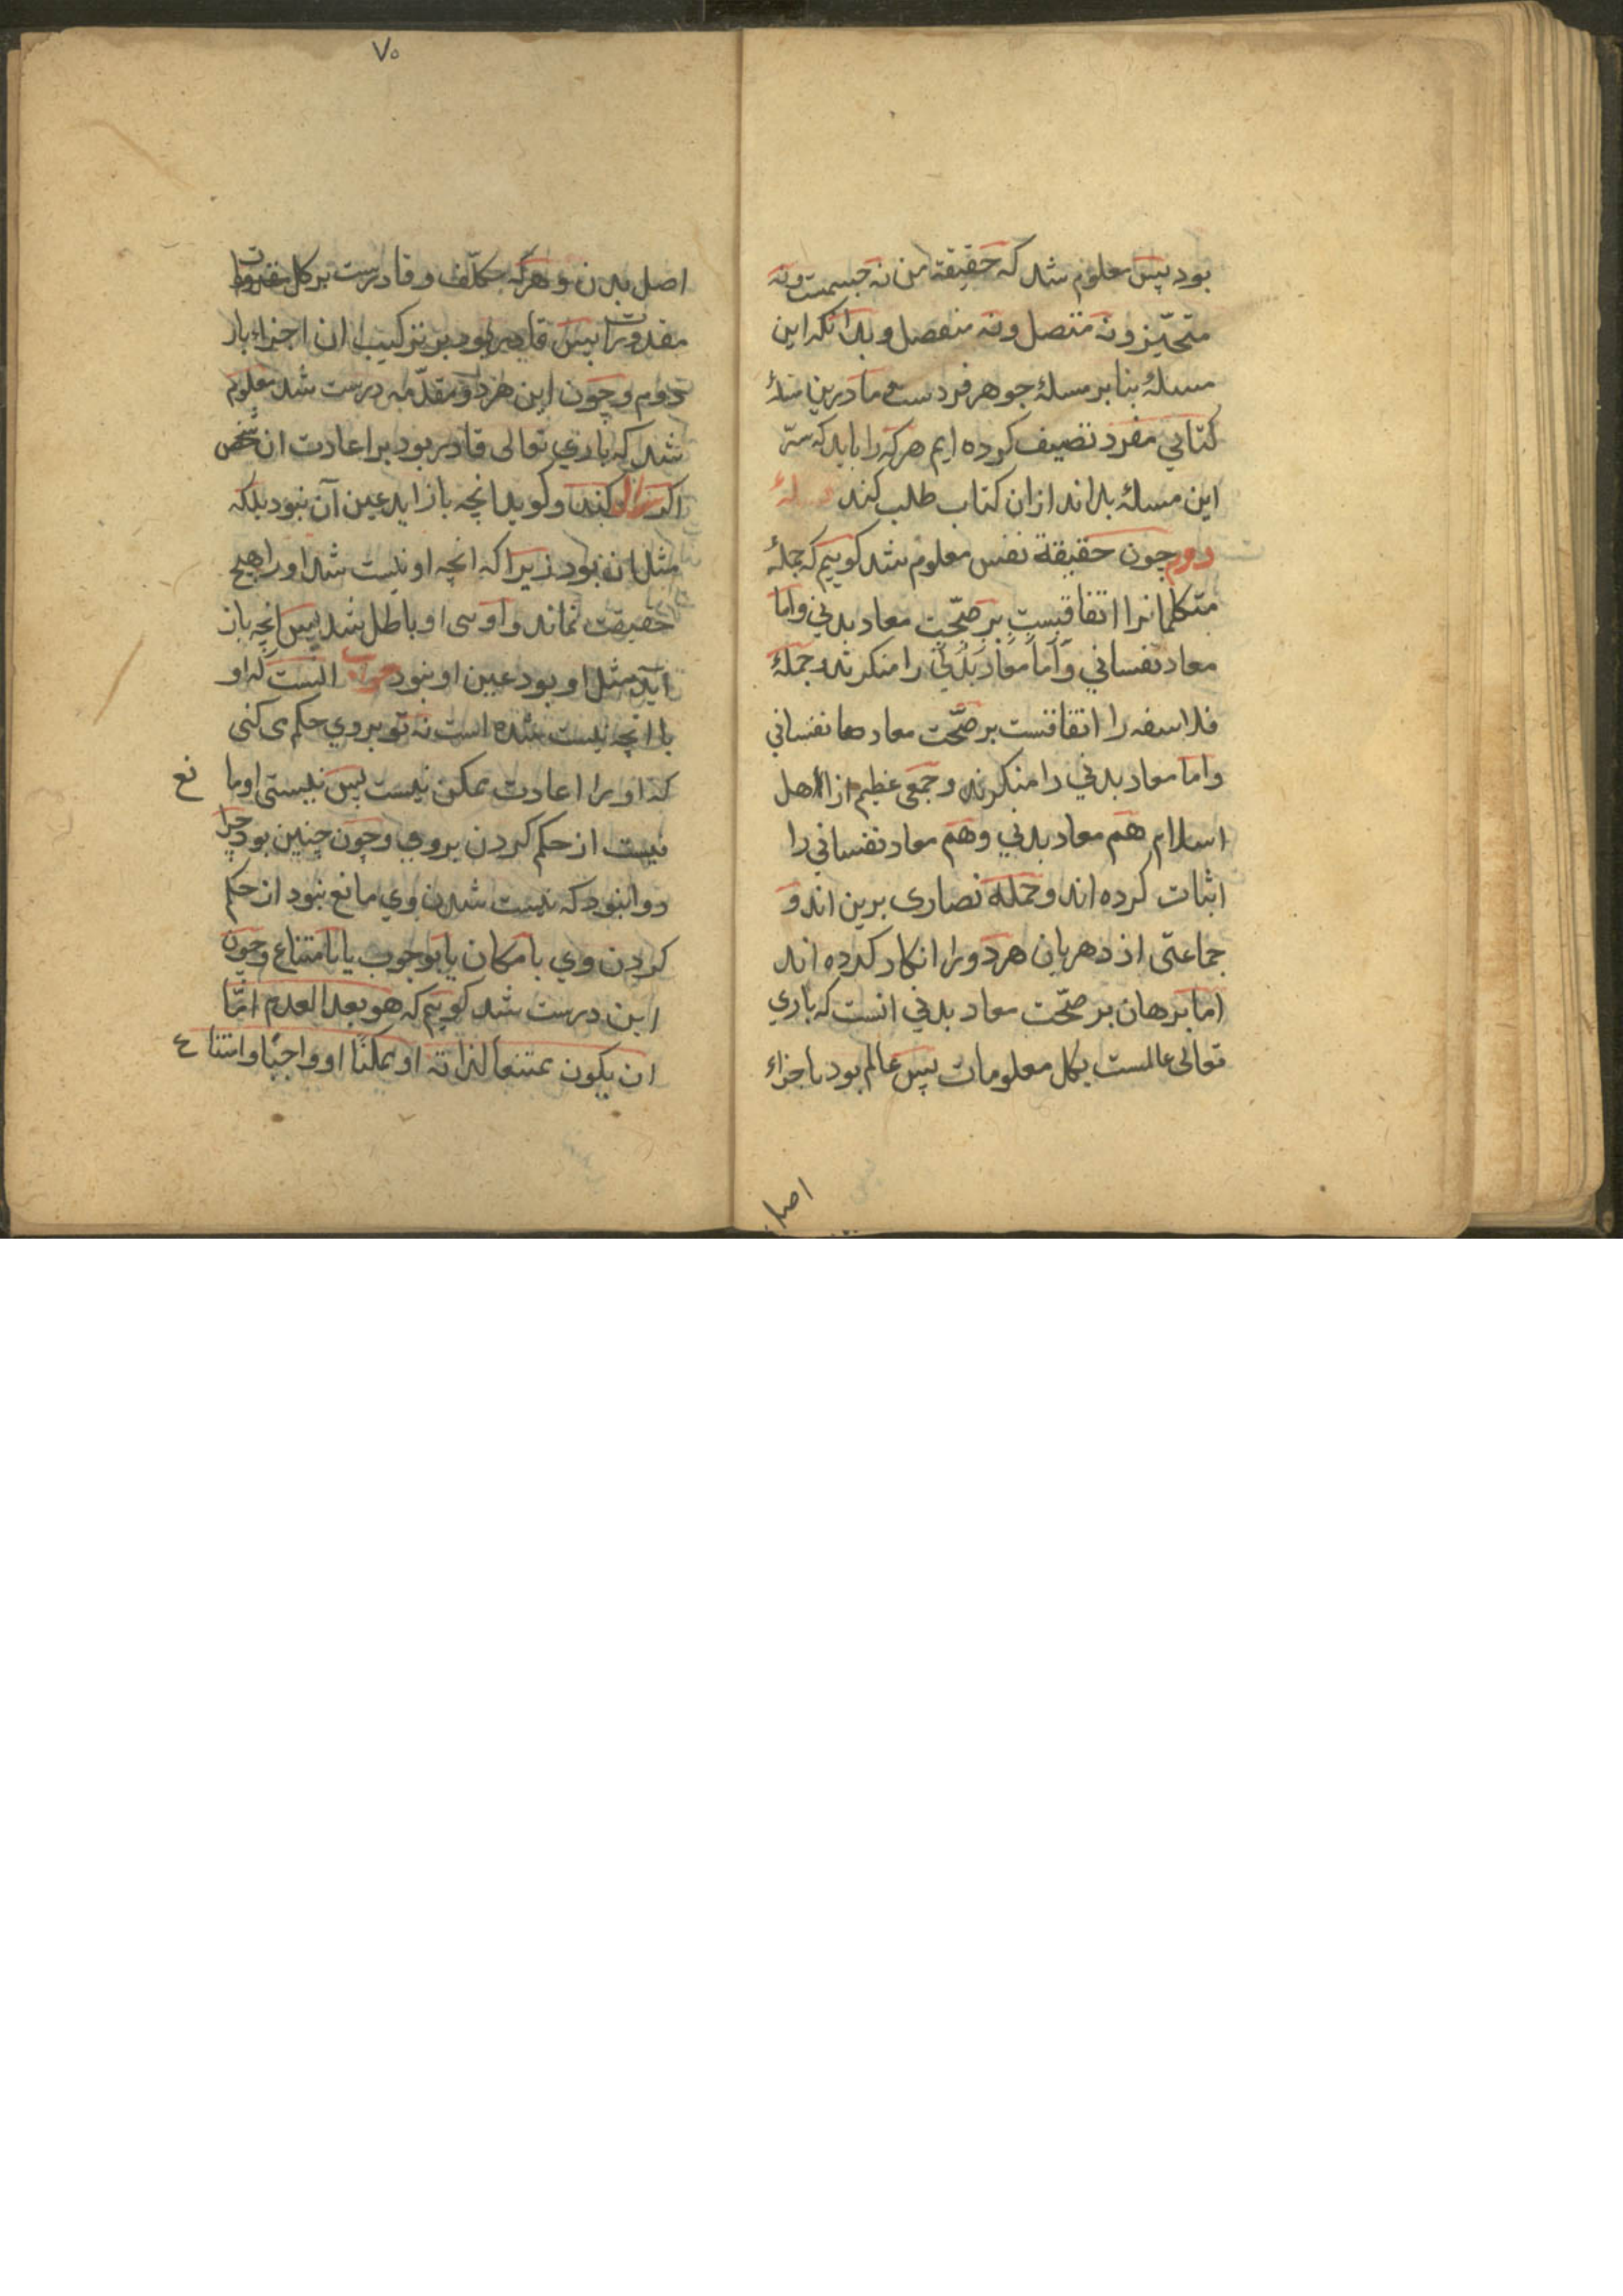 بود پس معلوم شد که حقیقة من نه جسمست ونه
متحیّز ونه متصل ونه منفصل وبدانکه این
مسلهٔ بنا بر مسلهٔ جوهر فردست وما درین مسلهٔ
کتابي مفرد تصنیف کرده ایم هرکه را باید که سرّ
این مسلهٔ بداند ازان کتاب طلب کند مسلهٔ
دوم چون حقیقة نفس معلوم شد کوییم که جملهٔ
متکلمانرا اتفاقیست بر صحّت معاد بدني واما
معاد نفساني وَاَما مَعاد بَدَني را منکر شد جملهٔ
فلاسفه را اتفاقست بر صحّت معادها نفساني
واما معاد بدني را منکرند وجمعی عظیم از اهل
اسلام هم معاد بدني وهم معاد نفساني را
اثبات کرده اند وجملهٔ نصاری برین اند و
جماعتی از دهریان هردو را انکار کرده اند
اما برهان بر صحّت معاد بدني انست که باري
تعالی عالمست بکل معلومات پس عالم بود باجزاء
اصل
۷۵
اصل بدن هر مکلّف وقادرست بر کل
مقدورات پس قادر بود بر ترکیب ان اجزاء بار
دوم وچون این هردو مقدّمه درست شد معلوم
شد که باري تعالی قادر بود بر اعادت ان شخص
اکر سوال کند وکوید انچه باز اید عین آن نبود بلکه
مثل ان بود زیرا که انچه او نیست شد او را هیچ
حقیقت نماند واوی او باطل شد پس انچه باز
آید مثل او بود عین او نبود جواب انست که او
با انچه نیست شده است نه تو بروي حکم می کنی
که او را اعادت ممکن نیست پس نیستی او ما نع
نیست از حکم کردن بروي وچون چنین بود چرا
روا نبود که نیست شدن وي مانع نبود از حکم
کردن وي بامکان یا بوجوب یا بامتناع وچون
این درست شد کوییم که هو بعد العدم امّا
ان یکون ممتنعا لذاته او ممکنًا او واجبًا وامتنا ع